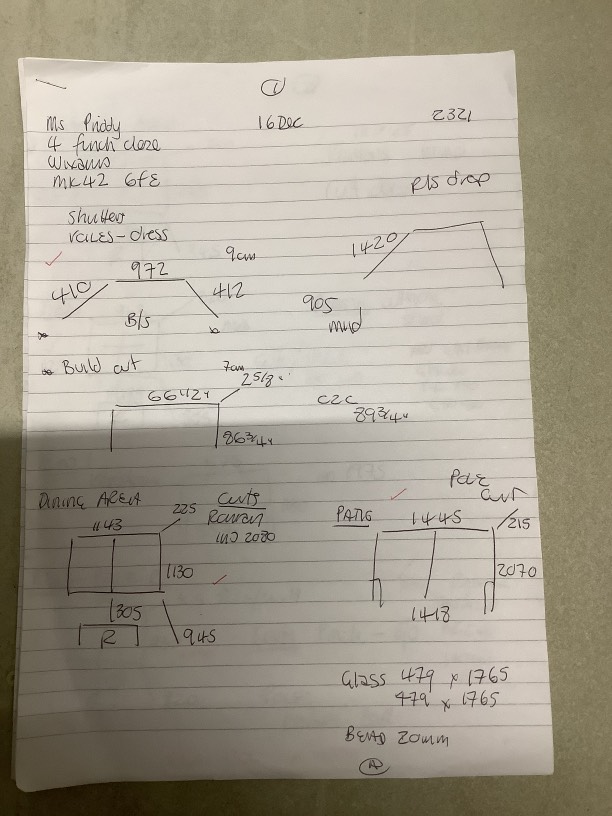 1
Ms Priddy 16 Dec 2321
4 finch close
Wixams
MK42 6FE
P/S drop
Shutters
9cm
972 1420
410 412
905
B/S mid
* Build out
7cm
66 1/2" 2 5/8"
C2C
89 3/4"
86 3/4"
DINING AREA 225 Curts
1143
Pole
Curt
PATIO 1445 215
1130 2070
1305 1418
R 945
Glass 479 x 1765
479 x 1765
BEAD 20mm
A